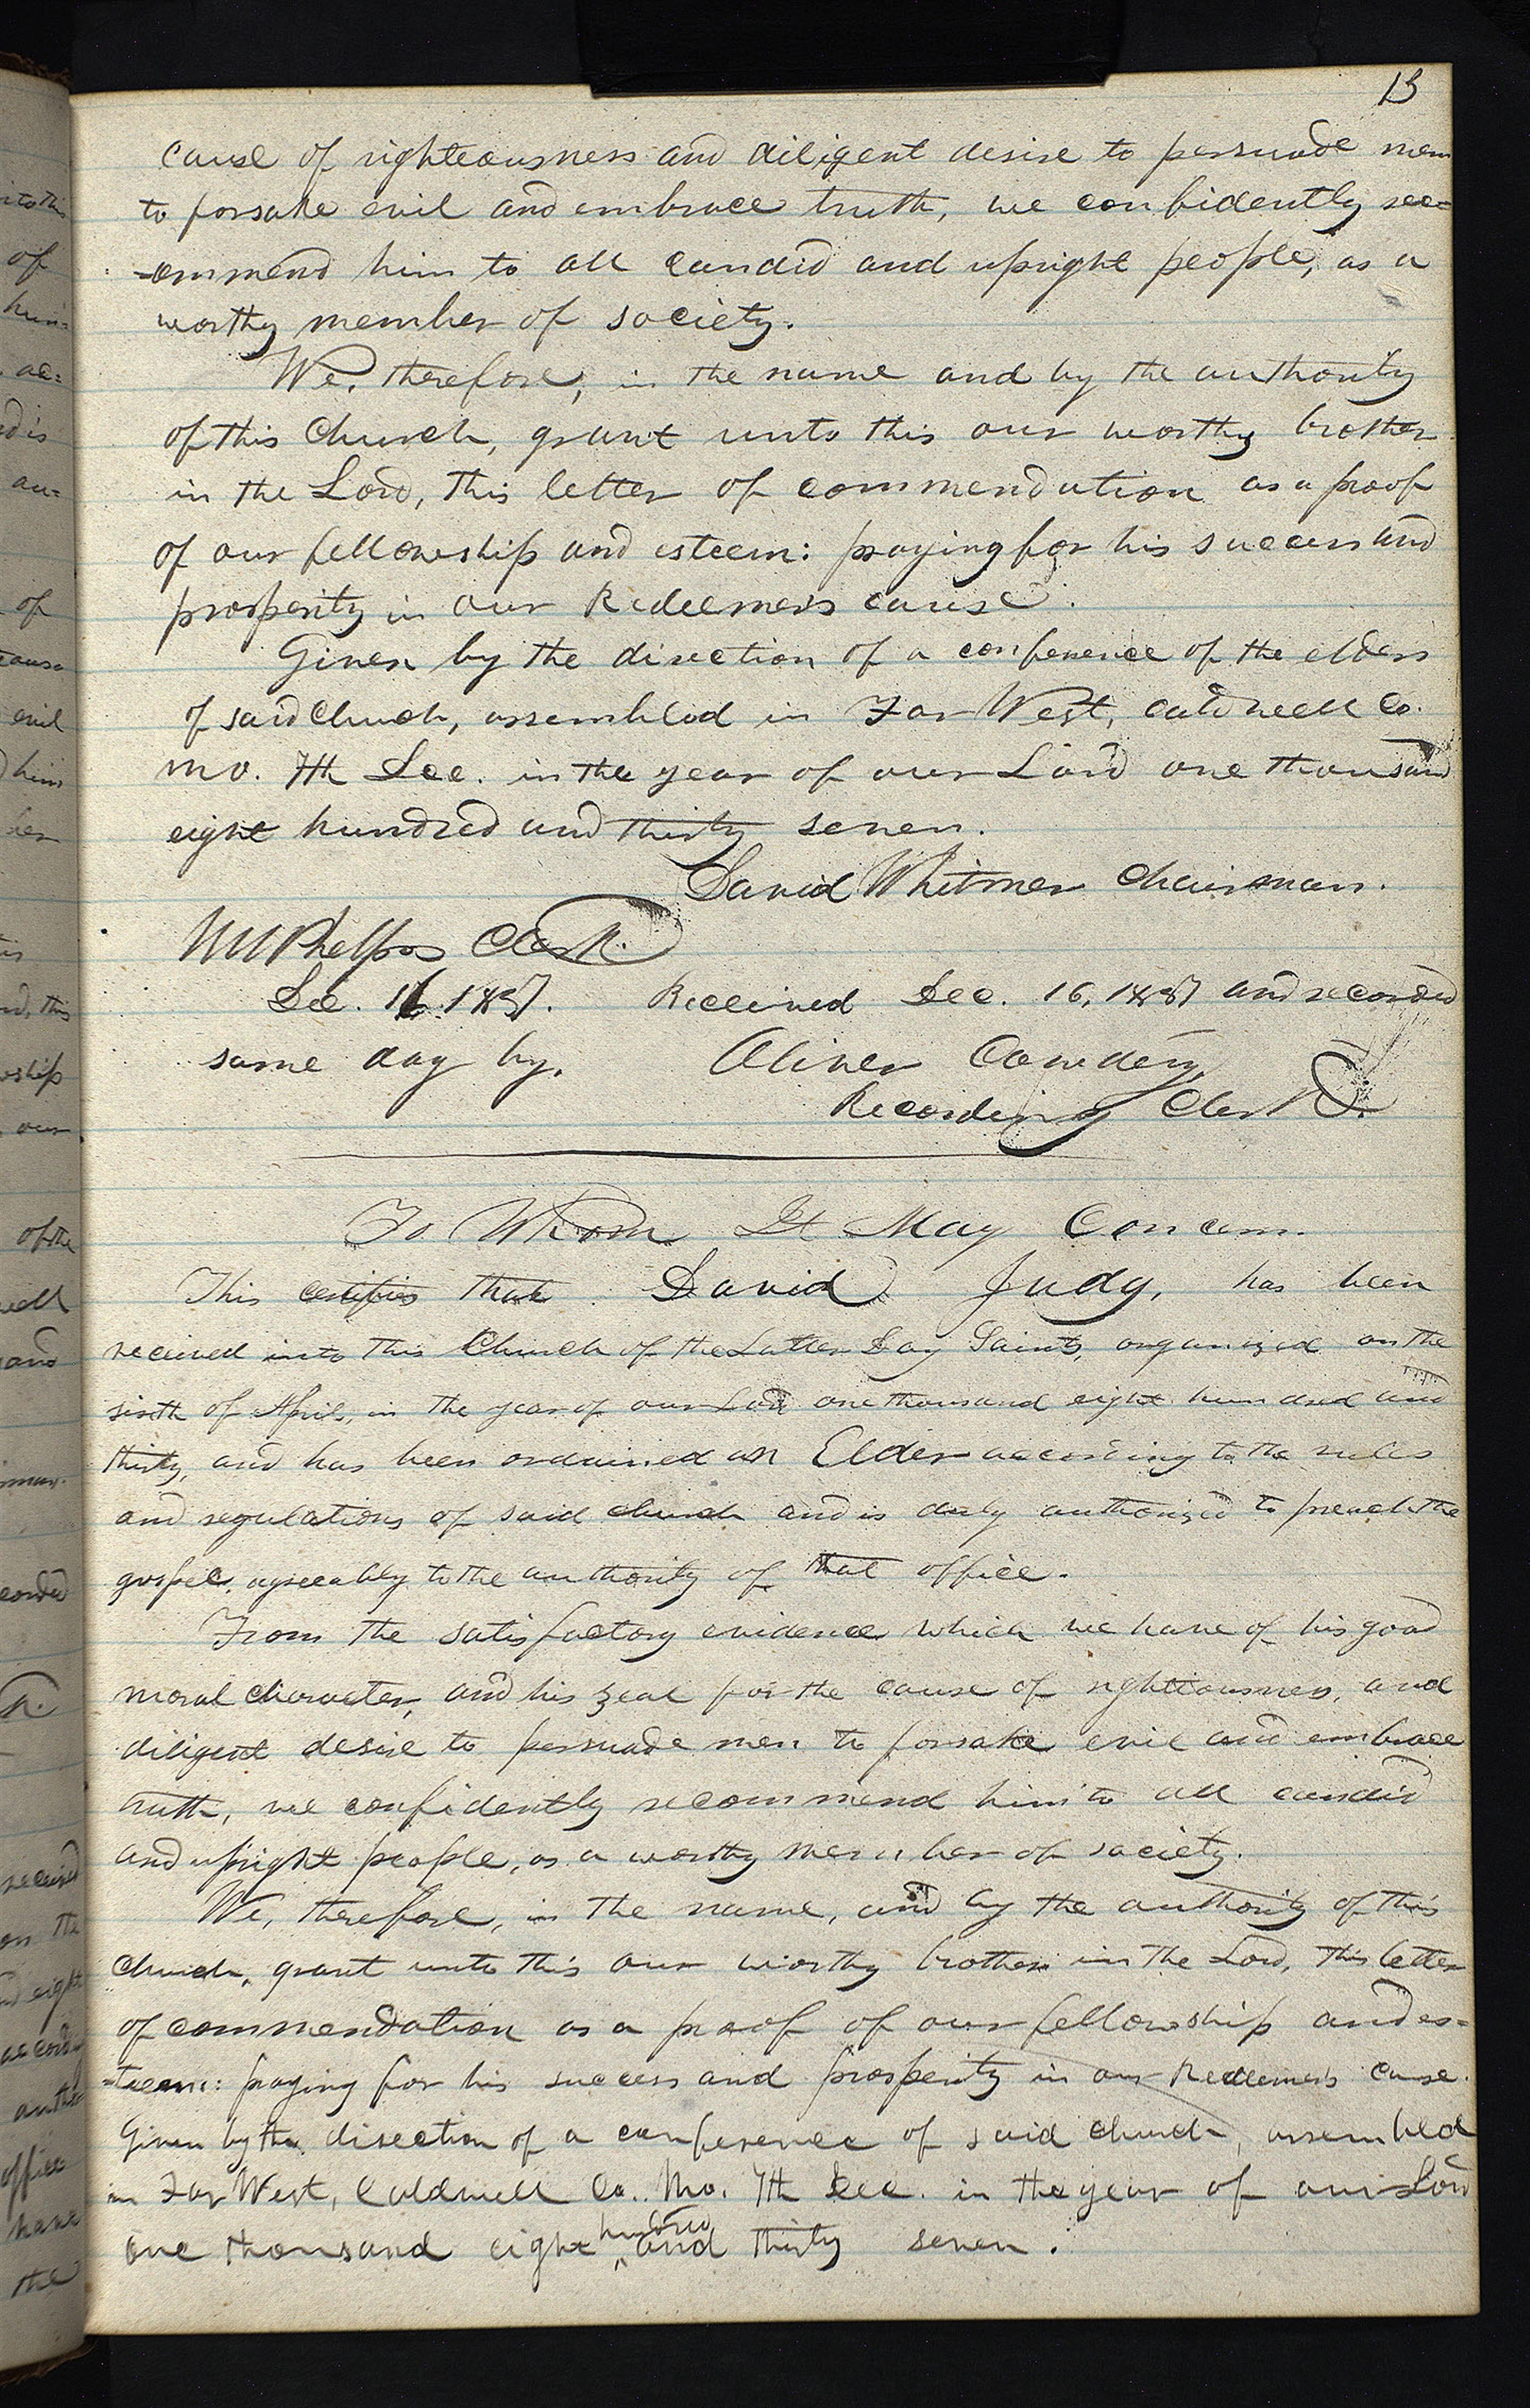 13
cause of righteousness and diligent desire to persuade men
to forsake evil and embrace truth, we confidently rec=
=ommend him to all candid and upright people, as a
worthy member of society.
We, therefore, in the name and by the authority
of this Church, grant unto this our worthy brother
in the Lord, this letter of commendation as a proof
of our fellowship and esteem: praying for his success and
prosperity in our Redeemer's cause.
Given by the direction of a conference of the elders
of said Church, assembled in Far West, Caldwell Co.
Mo. 7th Dec. in the year of our Lord one thousand
eight hundred and thirty seven.
David Whitmer Chairman.
W W Phelps Clerk.
Dec. 16. 1837. Received Dec. 16, 1837 and recorded
same day by. Oliver Cowdery,
Recording Clerk.
To Whom It May Concern.
This certifies that David Judy, has been
received into this Church of the Latter Day Saints, organized on the
sixth of April, in the year of our Lord one thousand eight hundred and
thirty, and has been ordained an Elder according to the rules
and regulations of said church and is duly authorized to preach the
gospel, agreeably to the authority of that office.
From the satisfactory evidence which we have of his good
moral character, and his zeal for the cause of righteousness, and
diligent desire to persuade men to forsake evil and embrace
truth, we confidently recommend him to all candid
and upright people, as a worthy member of society.
We, therefore, in the name, and by the authority of this
church, grant unto this our worthy brother in the Lord, this letter
of commendation as a proof of our fellowship and es=
=teem: praying for his success and prosperity in our Redeemer's cause.
Given by the direction of a conference of said church, assembled
in Far West, Caldwell Co. Mo. 7th Dec. in the year of our Lord
one thousand eight hundred and thirty seven.